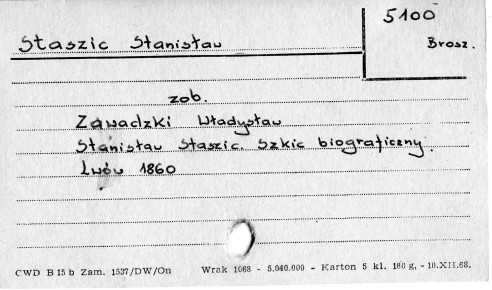 5100
Staszic Stanisław Brosz.
zob.
Zawadzki Władysław
Stanisław Staszic. Szkic biograficzny.
Lwów 1860
CWD B 15 b Zam. 1537/DW/On Wrak 1068 - 5.040.000 - Karton 5 kl. 180 g. - 10.XII.68.